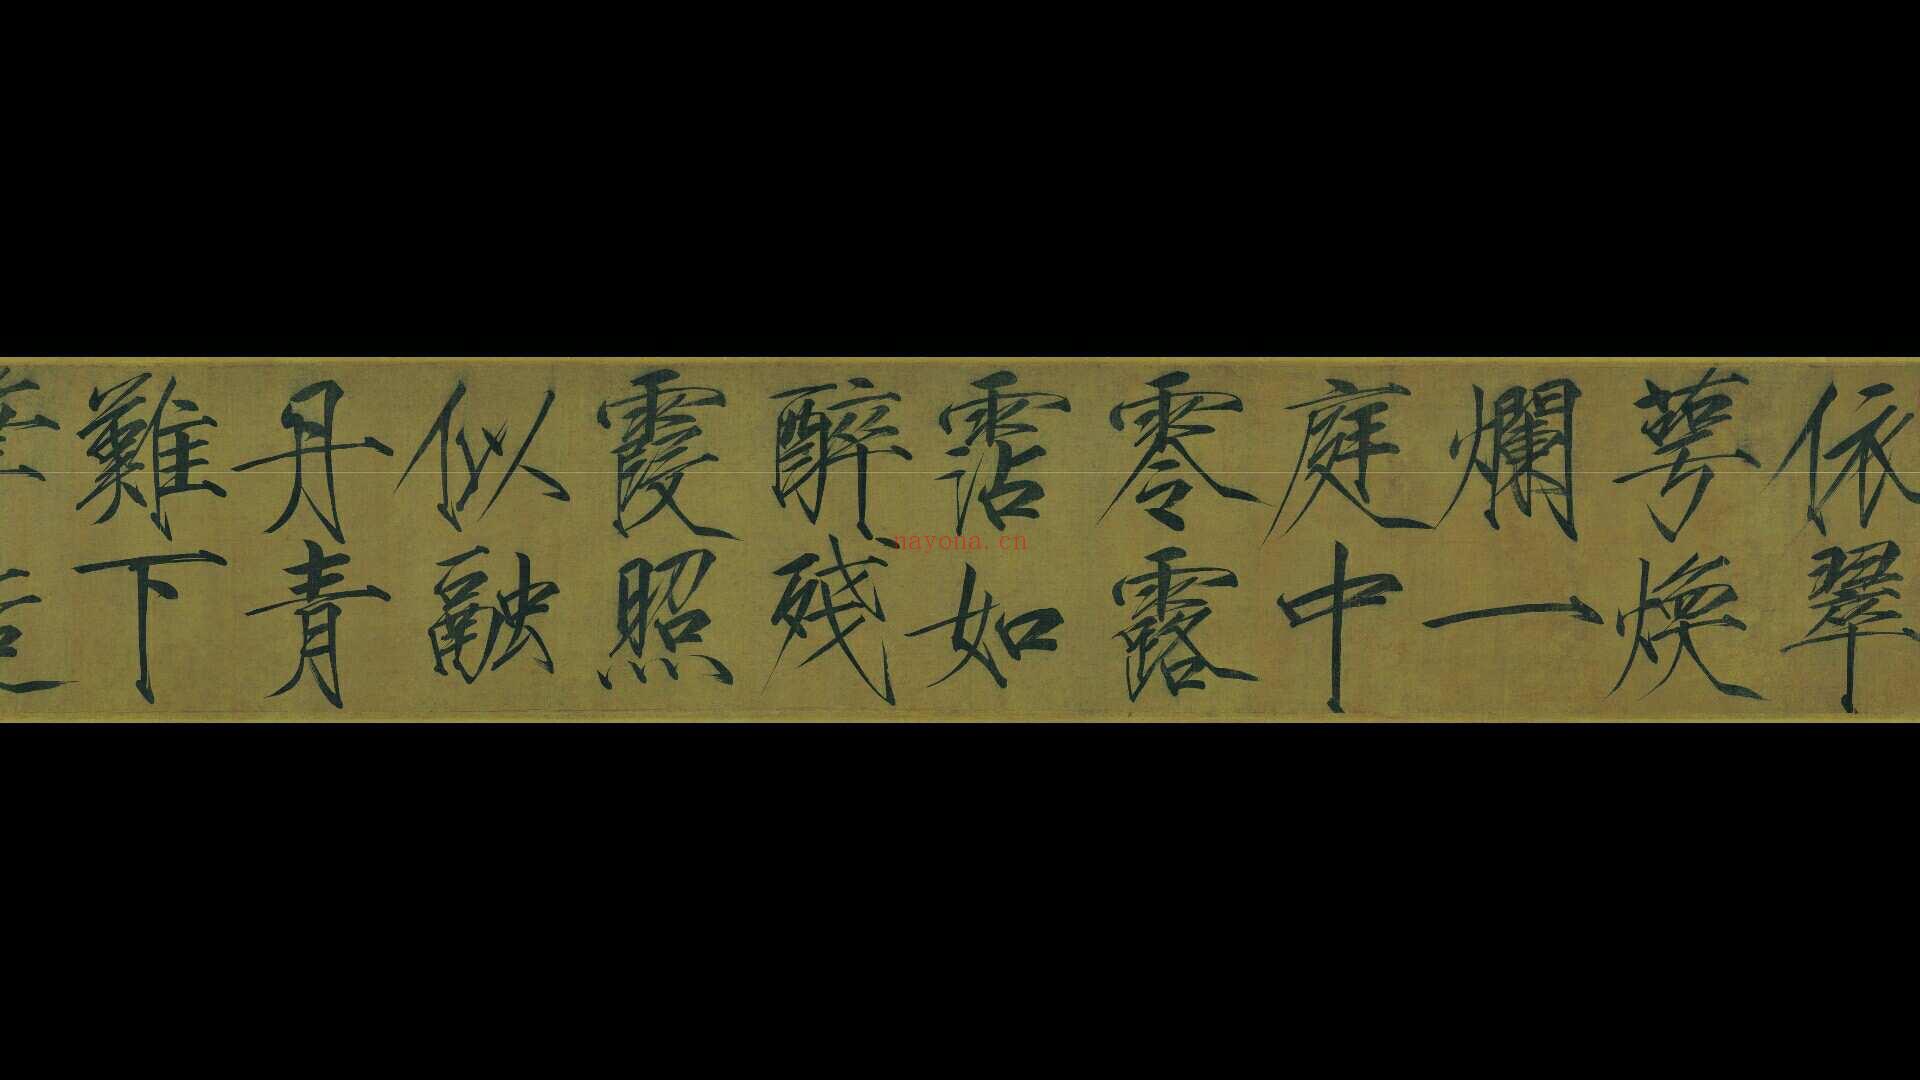 依翠
萼煥
爛一
庭中
零露
霑如
醉殘
霞照
似融
丹青
難下
筆造
nayona.cn